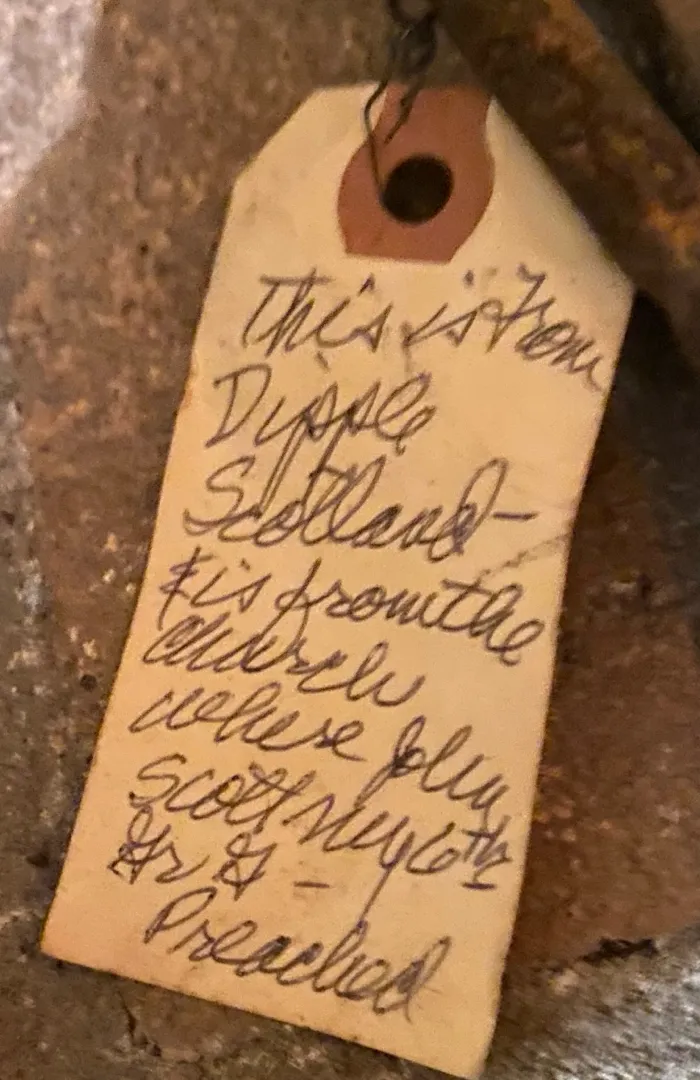 This is From
Dipple
Scotland -
& is from the
church
where John
Scott my 6th
Gr G -
Preached